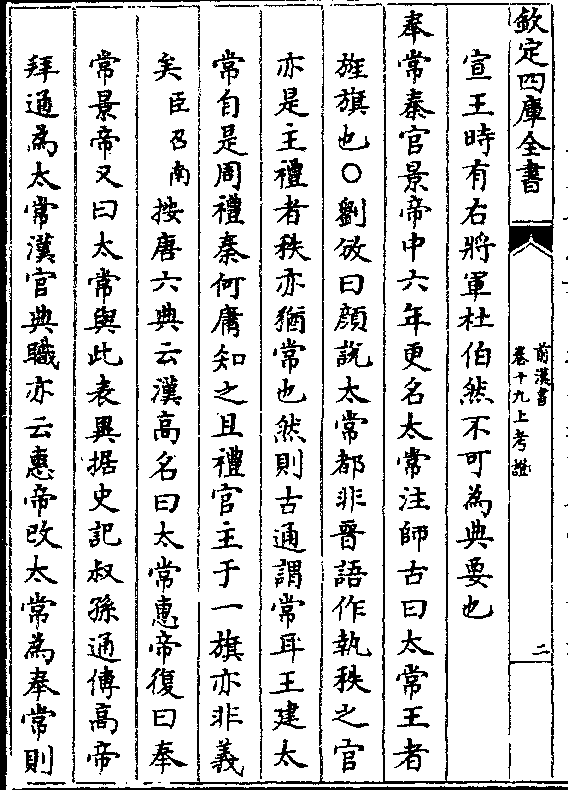 欽定四庫全書
前漢書
卷十九上考證
二
宣王時有右將軍杜伯然不可為典要也
奉常秦官景帝中六年更名太常注師古曰太常王者
旌旗也○劉攽曰顔說太常都非晉語作執秩之官
亦是主禮者秩亦猶常也然則古通謂常耳王建太
常自是周禮秦何庸知之且禮官主于一旗亦非義
矣臣召南按唐六典云漢高名曰太常惠帝復曰奉
常景帝又曰太常與此表異据史記叔孫通傳高帝
拜通為太常漢官典職亦云惠帝改太常為奉常則